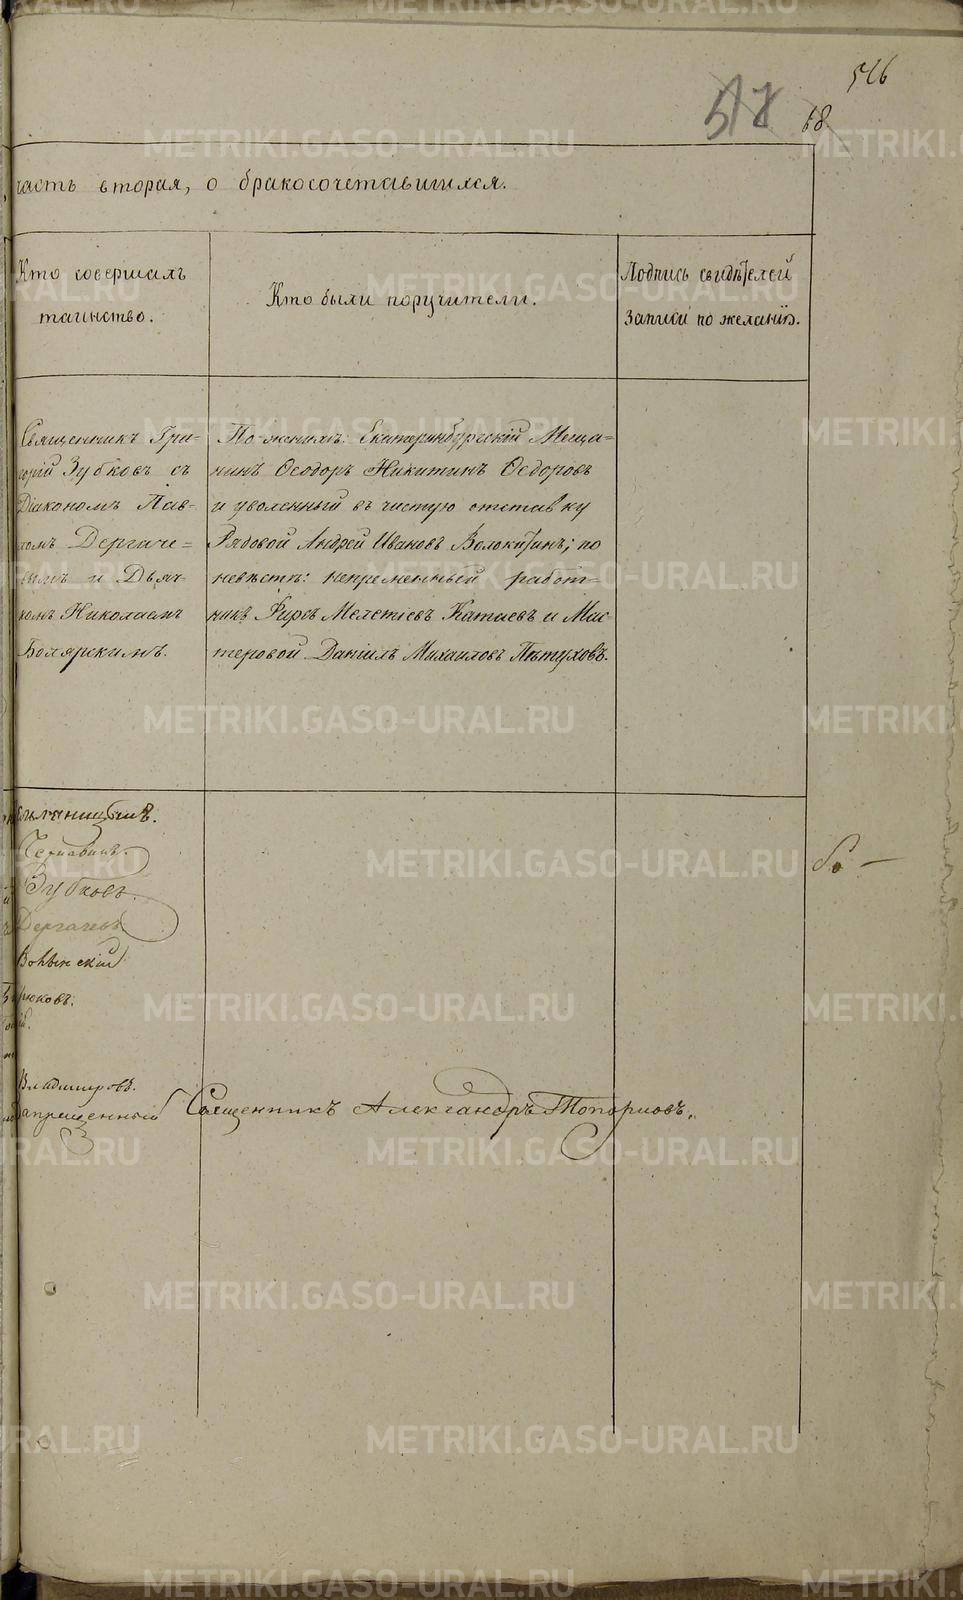 526
518
68
часть вторая, о бракосочетавшихся.
Кто совершалъ
таинство.
Кто были поручители.
Подпись свидѣтелей
записи по желанію.
Священникъ Гри-
горій Зубковъ съ
Діакономъ Пав-
ломъ Дергаче-
вымъ и Дьяч-
комъ Николаемъ
Боярскимъ.
По женихѣ: Екатеринбургскій Меща-
нинъ Ѳеодоръ Никитинъ Ѳедоровъ
и уволенный въ чистую отставку
Рядовой Андрей Ивановъ Волокитинъ; по
невѣстѣ: непременный работ-
никъ Фирсъ Мелетіевъ Катаевъ и Мас-
теровой Даніилъ Михаиловъ Пѣтуховъ.
Чернавинъ.
Зубковъ.
Дергачевъ
Волынскій
Бирюковъ.
Владимировъ.
запрещенный Священникъ Александръ Топорковъ.
METRIKI.GASO-URAL.RU